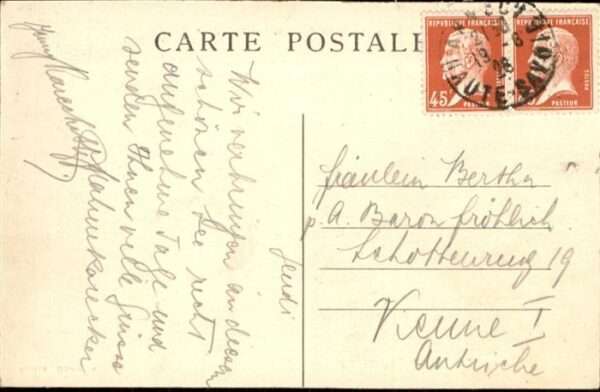 CARTE POSTALE
Jeudi
Wir verbringen an diesem
schönen See recht
angenehme Tage und
senden Ihnen viele Grüsse
REPUBLIQUE FRANÇAISE
REPUBLIQUE FRANÇAISE
POSTES
45
PASTEUR
PASTEUR
ANNECY
HAUTE-SAVOIE
Fräulein Bertha
p. A. Baron Fröhlich
Schottenring 19
Vienne I
Autriche